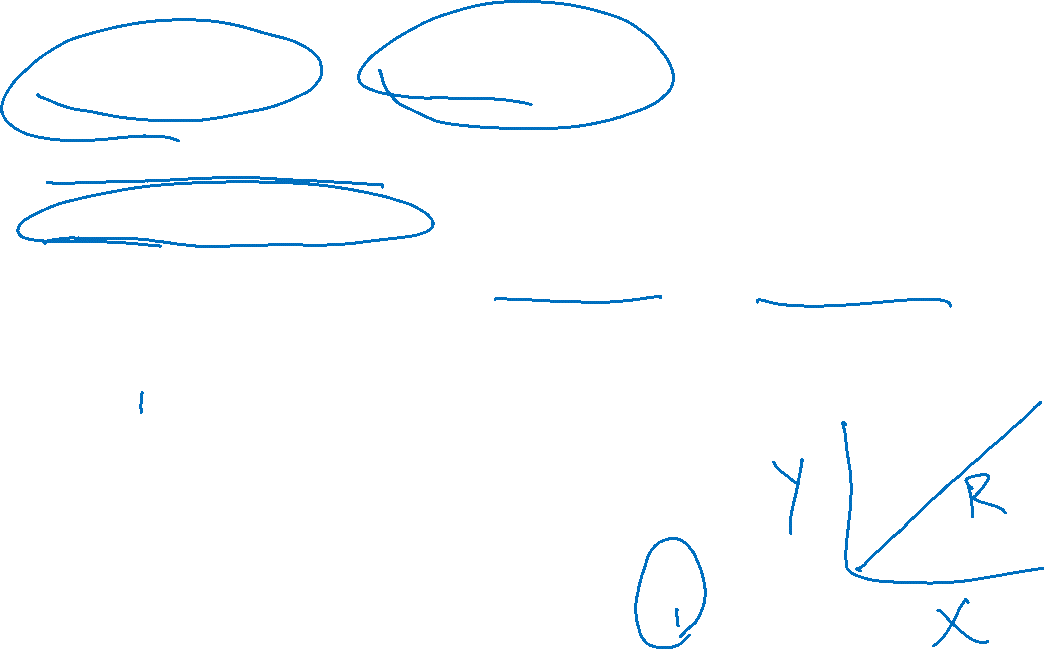 Y
R
X